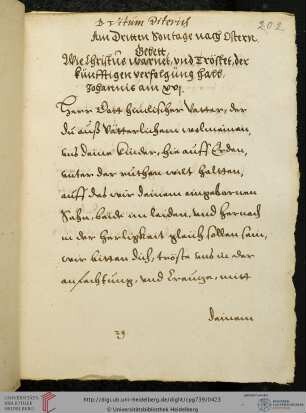 202
Am Dritten Sontage nach Ostern
Gebett
Wie Christus warnet, und Tröstet, der
künfftigen verfolgung halb,
Johannis am xvj.
Herr Gott himlischer Vatter, der
du auß Vätterlichem wolmeinen,
uns deine kinder, hie auff Erden,
unter der ruthen wilt haltten,
auff das wir deinem eingebornen
Sohn, beide im leiden, und hernach
in der herligkeit gleich sollen sein,
wir bitten dich, tröste uns in der
anfechtung, und Creutze, mitt
deinem
UNIVERSITÄTS-
BIBLIOTHEK
HEIDELBERG
http://digi.ub.uni-heidelberg.de/diglit/cpg739/0423
© Universitätsbibliothek Heidelberg